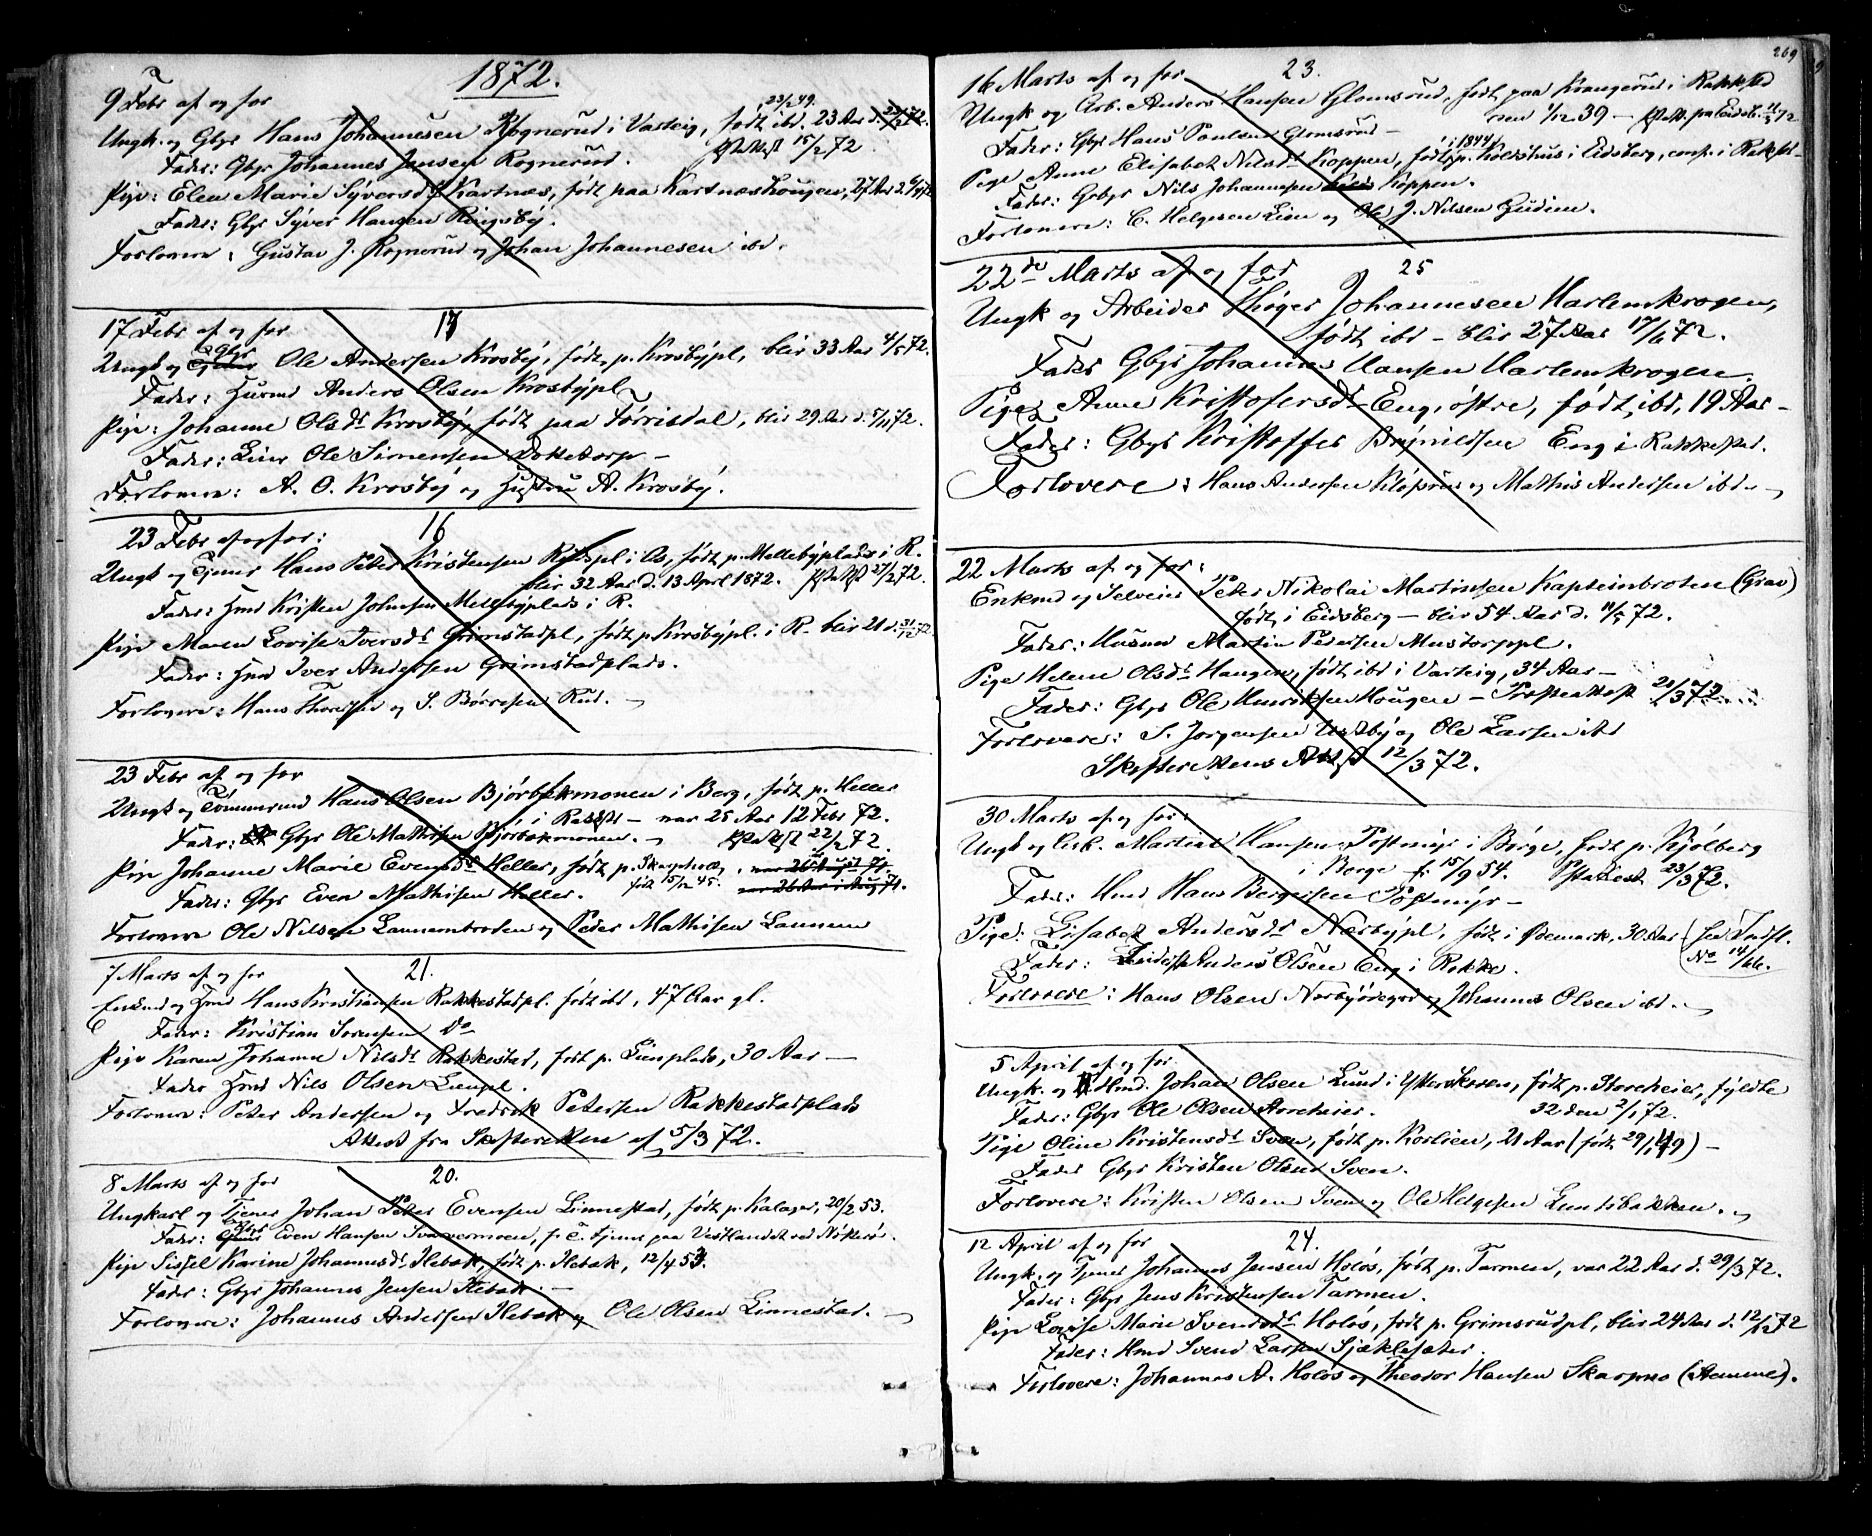 1872.
9 Febr af og for
Ungk. og Gbgr Hans Johannesen Rognerud i Varteig, født ibd. 23/2 49. 23 Aar d. 23/2 72.
Fader: Gbgr Johannes Jensen Rognerud. Pstattest 15/2 72
Pige: Elen Marie Syversdtr Kartnæs, født paa Kartnæshougen, 27 Aar
Fader: Gbgr Syver Hansen Ringsby.
Forlovere: Gustav J. Rognerud og Johan Johannesen ibd.
17 Febr af og for 17
Ungk og Gbgr Ole Andersen Krosby, født p. Krosbypl, blir 33 Aar 4/5 72.
Fader: Husmd Anders Olsen Krosbypl
Pige: Johanne Olsdtr Krosby, født paa Torrisdal, blir 29 Aar d. 5/11 72.
Fader: Ole Simensen Dokketorp –
Forlovere: A. O. Krosby og A. Krosby.
23 Febr af og for: 16
Ungk og Tjener Hans Peter Kristensen Rudspl i Os, født p. Mellebyplads i R.
blir 32 Aar d. 13 April 1872. Pstatst 27/2 72.
Fader: Hmd Kristen Johnsen Mellebyplads i R.
Pige Maren Lovise Iversdtr Grimstadpl, født p. Krosbypl. i R. blir 21 d. 31/12 72
Fader: Hmd Iver Andersen Grimstadplads.
Forlovere: Hans Thoresen og S. Børresen Rud. –
23 Febr af og for
Ungk og Tømmermd Hans Olsen Bjørbækmonen i Berg, født p. Heller
i Rakst – var 25 Aar 12 Febr 72.
Fader: Gbgr Ole Mathisen Bjørbekmonen. – Pstatst 22/2 72.
Pige Johanne Marie Evensdtr Heller, født p. født 15/12 45. var 26 Aar i Aug 71.
Fader: Gbgr Even Mathisen Heller.
Forlovere Ole Nilsen Lannembroden og Peder Mathisen Lannem
7 Marts af og for 21.
Enkmd og Hmd Hans Kristiansen Rakkestadpl. født ibd, 47 Aar gl.
Fader: Kristian Sorensen do
Pige Karen Johanne Nilsdtr Rakkestad, født p. Lienplads, 30 Aar –
Fader Hmd Nils Olsen Lienpl.
Forlovere: Peter Andersen og Fredrik Petersen Rakkestadplads
Attest fra Skifteretten af 5/3 72.
8 Marts af og for 20.
Ungkarl og Tjener Johan Peter Evensen Linnestad, født p. Kalager, 20/2 53.
Fader: Gbgr Even Hansen f. T. Tjener paa Vestlandet ved
Pige Sissel Karine Johannesdtr Ilebæk, født p. Ilebæk, 12/4 53.
Fader: Gbgr Johannes Jensen Ilebæk. –
Forlovere: Johannes Andersen Ilebæk og Ole Olsen Linnestad. –
269
16 Marts af og for 23.
Ungk og Arb. Anders Hansen Glomsrud, født paa Krangerud i Rakkstd
den 1/12 39 –
Fader: Gbgr Hans Paulsen Glomsrud –
Pige Anne Elisabet Nilsdtr Koppen, født i 1844 p. Kolsthus i Eidsberg, conf. i Rakst –
Fader: Gbgr Nils Johannesen Koppen.
Forlovere: C. Helgesen Lien og Ole J. Nilsen Gudim.
22de Marts af og for 25
Ungk og Arbeider Høger Johannesen Harlemkrogen,
født ibd – blir 27 Aar 17/6 72.
Fader Gbgr Johannes Hansen Harlemkrogen.
Pige Anne Kristofersdtr Eng, østre, født ibd, 19 Aar –
Fader: Gbgr Kristoffer Brynildsen Eng i Rakkestad.
Forlovere: Hans Andersen og Mathis Andersen ibd –
22 Marts af og for:
Enkmd og Selveier Peter Nikolai Martinsen Kapteinbroten (Grav)
født i Eidsberg – blir 54 Aar d. 11/5 72.
Fader: Husmd Martin Pedersen Mustorppl.
Pige Helene Olsdtr Haugen, født ibd i Varteig, 34 Aar –
Fader: Gbgr Ole Henriksen Hougen – Presteattest 21/3 72
Forlovere: S. Jorgensen og Ole Larsen ibd
Skifterettens Attst 12/3 72.
30 Marts af og for:
Ungk og Arb. Martin Hansen Tostmyr i Borge, født p. Kjølberg
i Borge f. 15/9 54. Pstattest 23/3 72.
Fader: Hmd Hans Bergersen Tostmyr –
Pige: Lisabet Andersdtr Nærbypl, født i Ødemark, 30 Aar (se Indfl. No 14/66.
Fader: Anders Olsen Eng i Rokke.
Forlovere: Hans Olsen og Johannes Olsen ibd. –
5 April af og for
Ungk. og Hmd. Johan Olsen Lund i Ytterskoven, født p. Storeheier, fyldte
32 den 2/1 72.
Fader: Gbgr Ole Olsen Storeheier.
Pige Oline Kristensdtr Sven, født p. Korlien, 21 Aar (født 29/1 49) –
Fader Gbgr Kristen Olsen Sven.
Forlovere: Kristen Olsen Sven og Ole Helgesen Lundsbakken. –
12 April af og for 24.
Ungk. og Tjener Johannes Jensen Holøs, født p. Tarmen, var 22 Aar d. 29/3 72.
Fader: Gbgr Jens Kristensen Tarmen.
Pige Lovise Marie Svendsdtr Holøs, født p. Grimsrudpl, blir 24 Aar d. 12/12 72
Fader: Hmd Svend Larsen Sjæklesæter.
Forlovere: Johannes A. Holøs og Theodor Hansen Skarpnes (Hemmed).